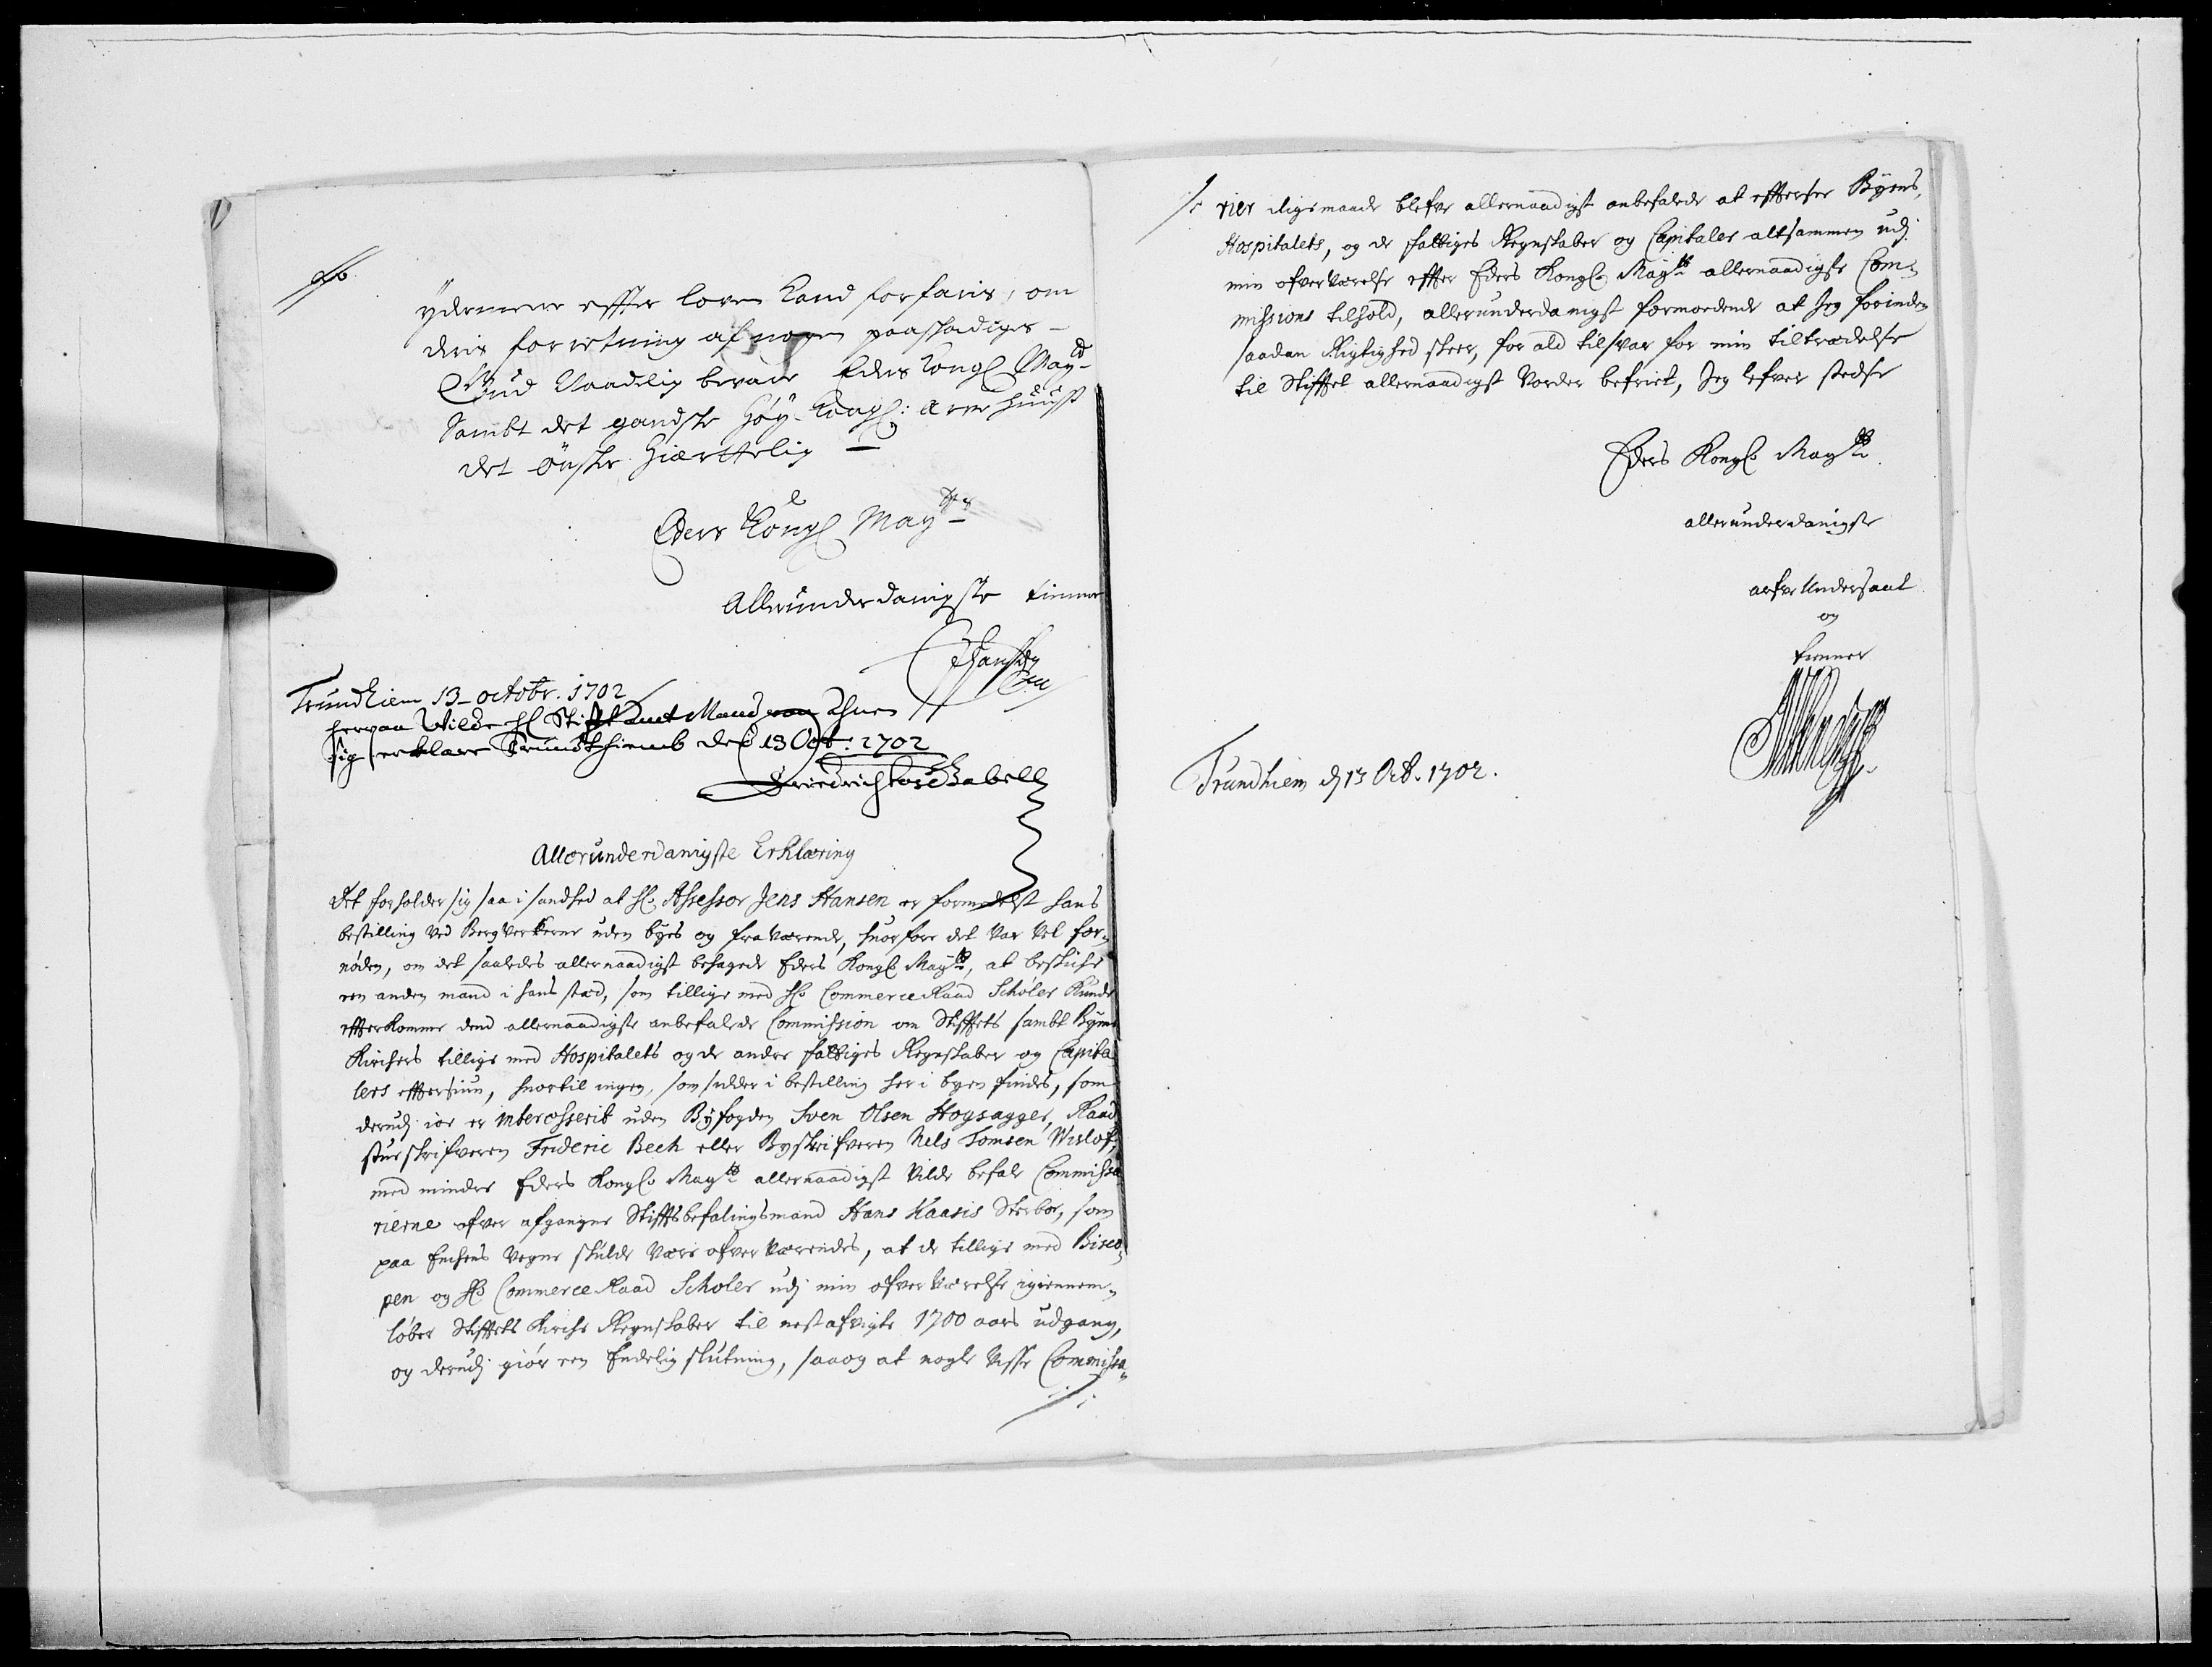 ydermere effter loven kand forfaris, om
deris forretning af nogen paaskadiges
Gud Naadelig bevare Eders Kongl May
Sambt det gandske høy-Kongl: arve huuss
det ønsker hiærttelig
Eders Kongl Mayts
Allerunderdanigste tienner
Trundhiem 13 octobr. 1702
herpaa Wilde hl StifftAmtMand
sig erklære Trundhiemb ded 13 Oct: 1702
Allerunderdanigste Erklæring
Det forholder sig saa i sandhed at hl. Assessor Jens Hansen er formedelst hans
bestilling ved Bergverkerne uden byes og fraværende, huorfore det var vel for¬
nøden, om det saaledes allernaadigst behagede Eders Kongl Mayts, at beskiche
een anden mand i hans sted, som tillige med hl. CommerceRaad Schöler kunde
effterkomme dend allernaadigste anbefalede Commission om Stifftets sambt Byens
Kirchers tillige med Hospitalets og de andre fattiges Regnskaber og Capita¬
lers eftersiun, huortil ingen, som sidder i bestilling her i byen findes, som
derudj ioe er interesserit uden Byfogden Sven Olsen Hogsagger, Raad
stueskrifveren Frideric Bech eller Byskrifveren Nels Tomsen Wislof,
med mindre Eders Kongl. Mayts allernaadigst vilde befale Commissa
rierne ofver afgangne Stifftsbefalingsmand Hans Kaasis Sterboe, som
paa Enchens vegne skulde være ofverværendes, at de tillige med Bisco¬
pen og hl. CommerceRaad Scholer udj min ofverværelse igiennem¬
løber Stifftets Kirche Regnskaber til nest afvigte 1700 aars udgang,
og derudj giør een Endelig slutning, saa og at nogle visse Commissa¬
rier ligemaade blefve allernaadigst anbefalede at efftersee Byens,
Hospitalets, og de fattiges Regnskaber og Capitaler altsammen udj
min ofverværelse effter Eders Kongl. Mayts allernaadigste Com¬
missions tilhold, allerunderdanigst formoedende at Jeg forinden
saadan Rigtighed skeer, for ald tilsvar for min tiltrædelse
til Stifftet allernaadigst vorder befriet, Jeg lefver stedse
Eders Kongl. Mayts
allerunderdanigste
arfve Undersaat
og
tienner
Trundhiem d 13 Oct. 1702.